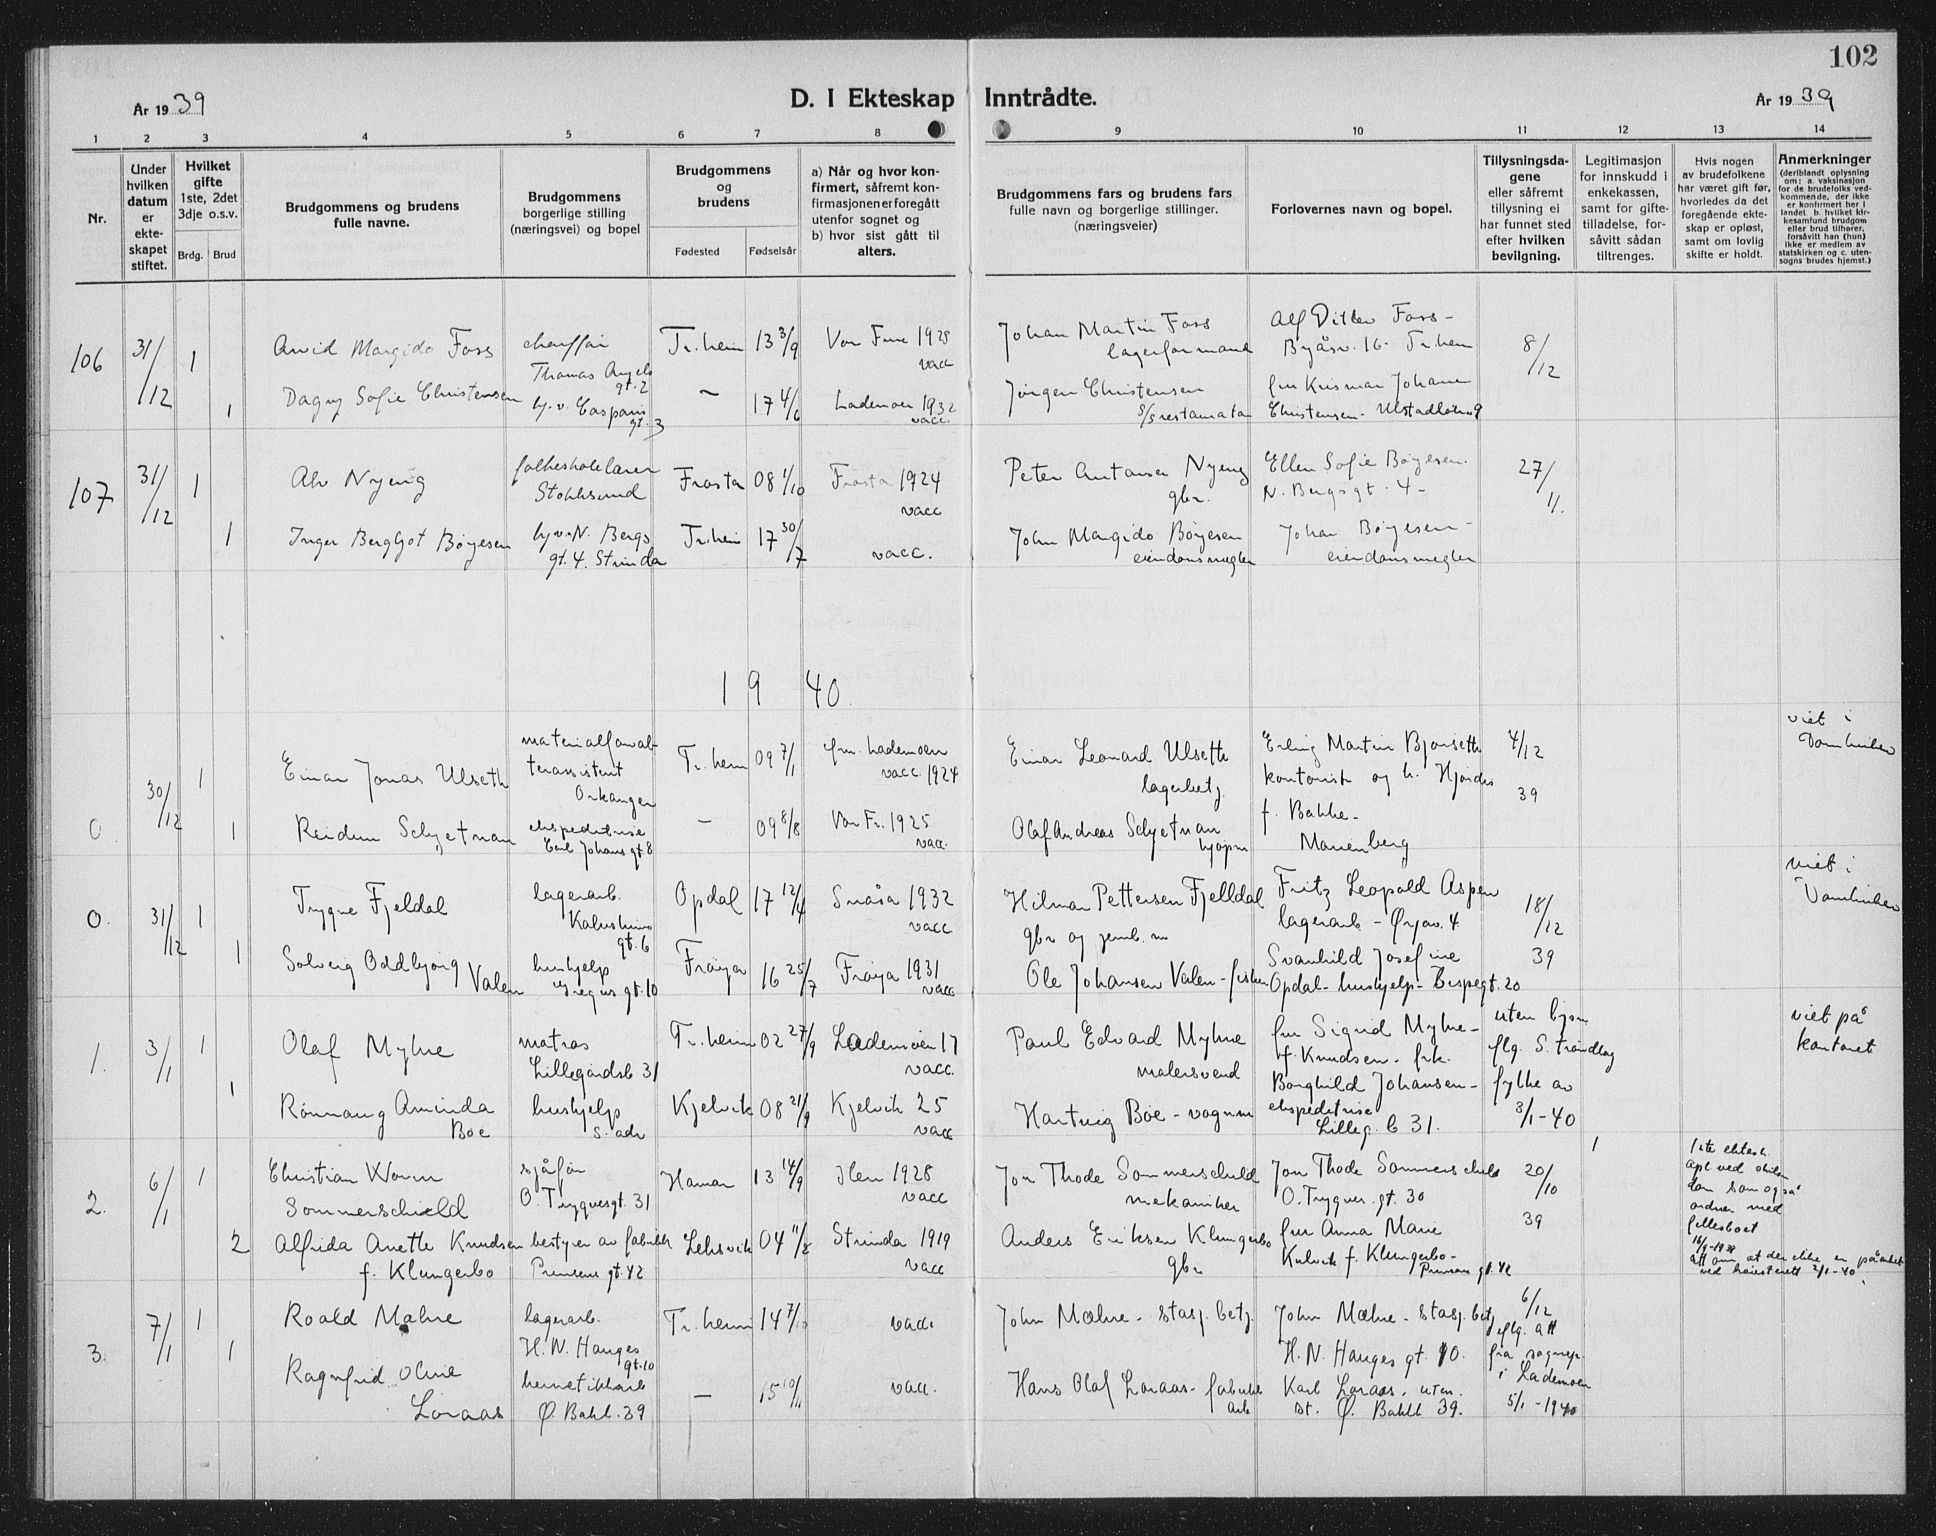 102
År 1939
D. I Ekteskap Inntrådte.
År 1939
1 2 3 4 5 6 7 8 9 10 11 12 13 14
Nr.
Under hvilken datum er ekteskapet stiftet.
Hvilket gifte 1ste, 2det 3dje o.s.v.
Brdg. Brud
Brudgommens og brudens fulle navne.
Brudgommens borgerlige stilling (næringsvei) og bopel
Brudgommens og brudens
Fødested Fødselsår
a) Når og hvor konfirmert, såfremt konfirmasjonen er foregått utenfor sognet og
b) hvor sist gått til alters.
Brudgommens fars og brudens fars fulle navn og borgerlige stillinger. (næringsveier)
Forlovernes navn og bopel.
Tillysningsdagene eller såfremt tillysning ei har funnet sted efter hvilken bevilgning.
Legitimasjon for innskudd i enkekassen, samt for giftetilladelse, forsåvitt sådan tiltrenges.
Hvis nogen av brudefolkene har været gift før, hvorledes da det foregående ekteskap er opløst, samt om lovlig skifte er holdt.
Anmerkninger (deriblandt oplysning om: a. vaksinasjon for de brudefolks vedkommende, der ikke er konfirmert her i landet. b. hvilket kirkesamfund brudgom eller brud tilhører, forsåvitt han (hun) ikke er medlem av statskirken og c. utensogns brudes hjemst.)
106 31/12 1 Arvid Margido Foss Tr.heim 13 3/9 Vor Frue 1928 vacc Johan Martin Foss lagerformand Alf Ditlev Foss - Byåsv. 16 - Tr.heim 8/12
Thomas Angels gt. 2
1 Dagny Sofie Christensen - 17 4/6 Lademoen 1932 vacc. Jørgen Christensen Christensen -
107 31/12 1 Alv Nyeng folkeskolelærer Stokksund Frosta 08 1/10 Frosta 1924 vacc Peter Antonsen Nyeng gbr. Ellen Sofie Bøyesen. N. Bergsgt. 4 - 27/11.
1 Inger Bergljot Bøyesen hj.v. N. Bergs gt. 4. Strinda Tr.heim 17 30/7 vacc. John Margido Bøyesen eiendomsmegler Johan Bøyesen - eiendomsmegler
1940
0 30/12 1 Einar Jonas Ulseth materialforvalterassistent Orkanger Tr.heim 09 7/1 Lademoen vacc. 1924 Einar Leonard Ulseth lagerbetj. Erling Martin Bjørseth kontorist og h. Hjørdis f. Bakke - Marienberg 4/12 39 viet i Domkirken
1 Reidun Schjetnan ekspeditrise Carl Johans gt. 8 - 09 8/8 Vor Fr. 1925 vacc. Olaf Andreas Schjetnan kjøpm
0. 31/12 1 Trygve Fjeldal lagerarb. gt. 6 Opdal 17 12/4 Snåsa 1932 vacc Hilmar Pettersen Fjelldal gbr og jernb. m Fritz Leopold Aspen lagerarb - Ørjav. 4 18/12 39 viet i Domkirken
1 Solveig Oddbjørg Valen hushjelp gt. 10 Frøya 16 25/7 Frøya 1931 vacc Ole Johansen Valen - fisker Svanhild Josefine Opdal - hushjelp - Bispegt. 20
1. 3/1 1 Olaf Myhre matros Lillegårdsb 31 Tr.heim 02 27/9 Lademoen 17 vacc. Paul Edvard Myhre malersvend fru Sigrid Myhre - f. Knudsen - frk. uten lysn iflg. S. Trøndelag fylke av 3/1-40 viet på kontoret
1 Rønnaug Aminda Boe hushjelp s. adr Kjelvik 08 21/9 Kjelvik 25 vacc Hartvig Boe - vognm Borghild Johansen - ekspeditrise Lilleg. b 31.
2. 6/1 1 Christian Worm Sommerschield sjåfør O. Trygvesgt. 31 Hamar 13 14/9 Ilen 1928 vacc Jon Thode Sommerschield mekaniker Jon Thode Sommerschield O. Trygves. gt. 30 20/10 39 1
2 Alfrida Anette Knudsen f. Klungerbo bestyrer av fabrikk Prinsens gt. 42 Leksvik 04 11/8 Strinda 1919 vacc Anders Eriksen Klungerbo gbr fru Anna Marie Kulvik f. Klungerbo - Prinsens gt. 42
1ste ektesk. opl ved skilsm. dom som også ordner med fellesboet 16/9-1938 att om at den ikke er påanket ved høiesterett 2/1-40.
3. 7/1 1 Roald Mæhre lagerarb. H. N. Hauges gt. 10 Tr.heim 14 7/10 vacc John Mæhre - stasj. betj. John Mæhre - stasj. betj H. N. Hauges gt. 10. 6/12 iflg. att fra sognepr. i Lademoen 5/1-1940
1 Ragnfrid Oline Loraas hermetikkarb Ø. Bakl. 39 - 15 10/11 vacc. Hans Olaf Loraas - fabrikkarb Karl Loraas. Ø. Bakl 39.